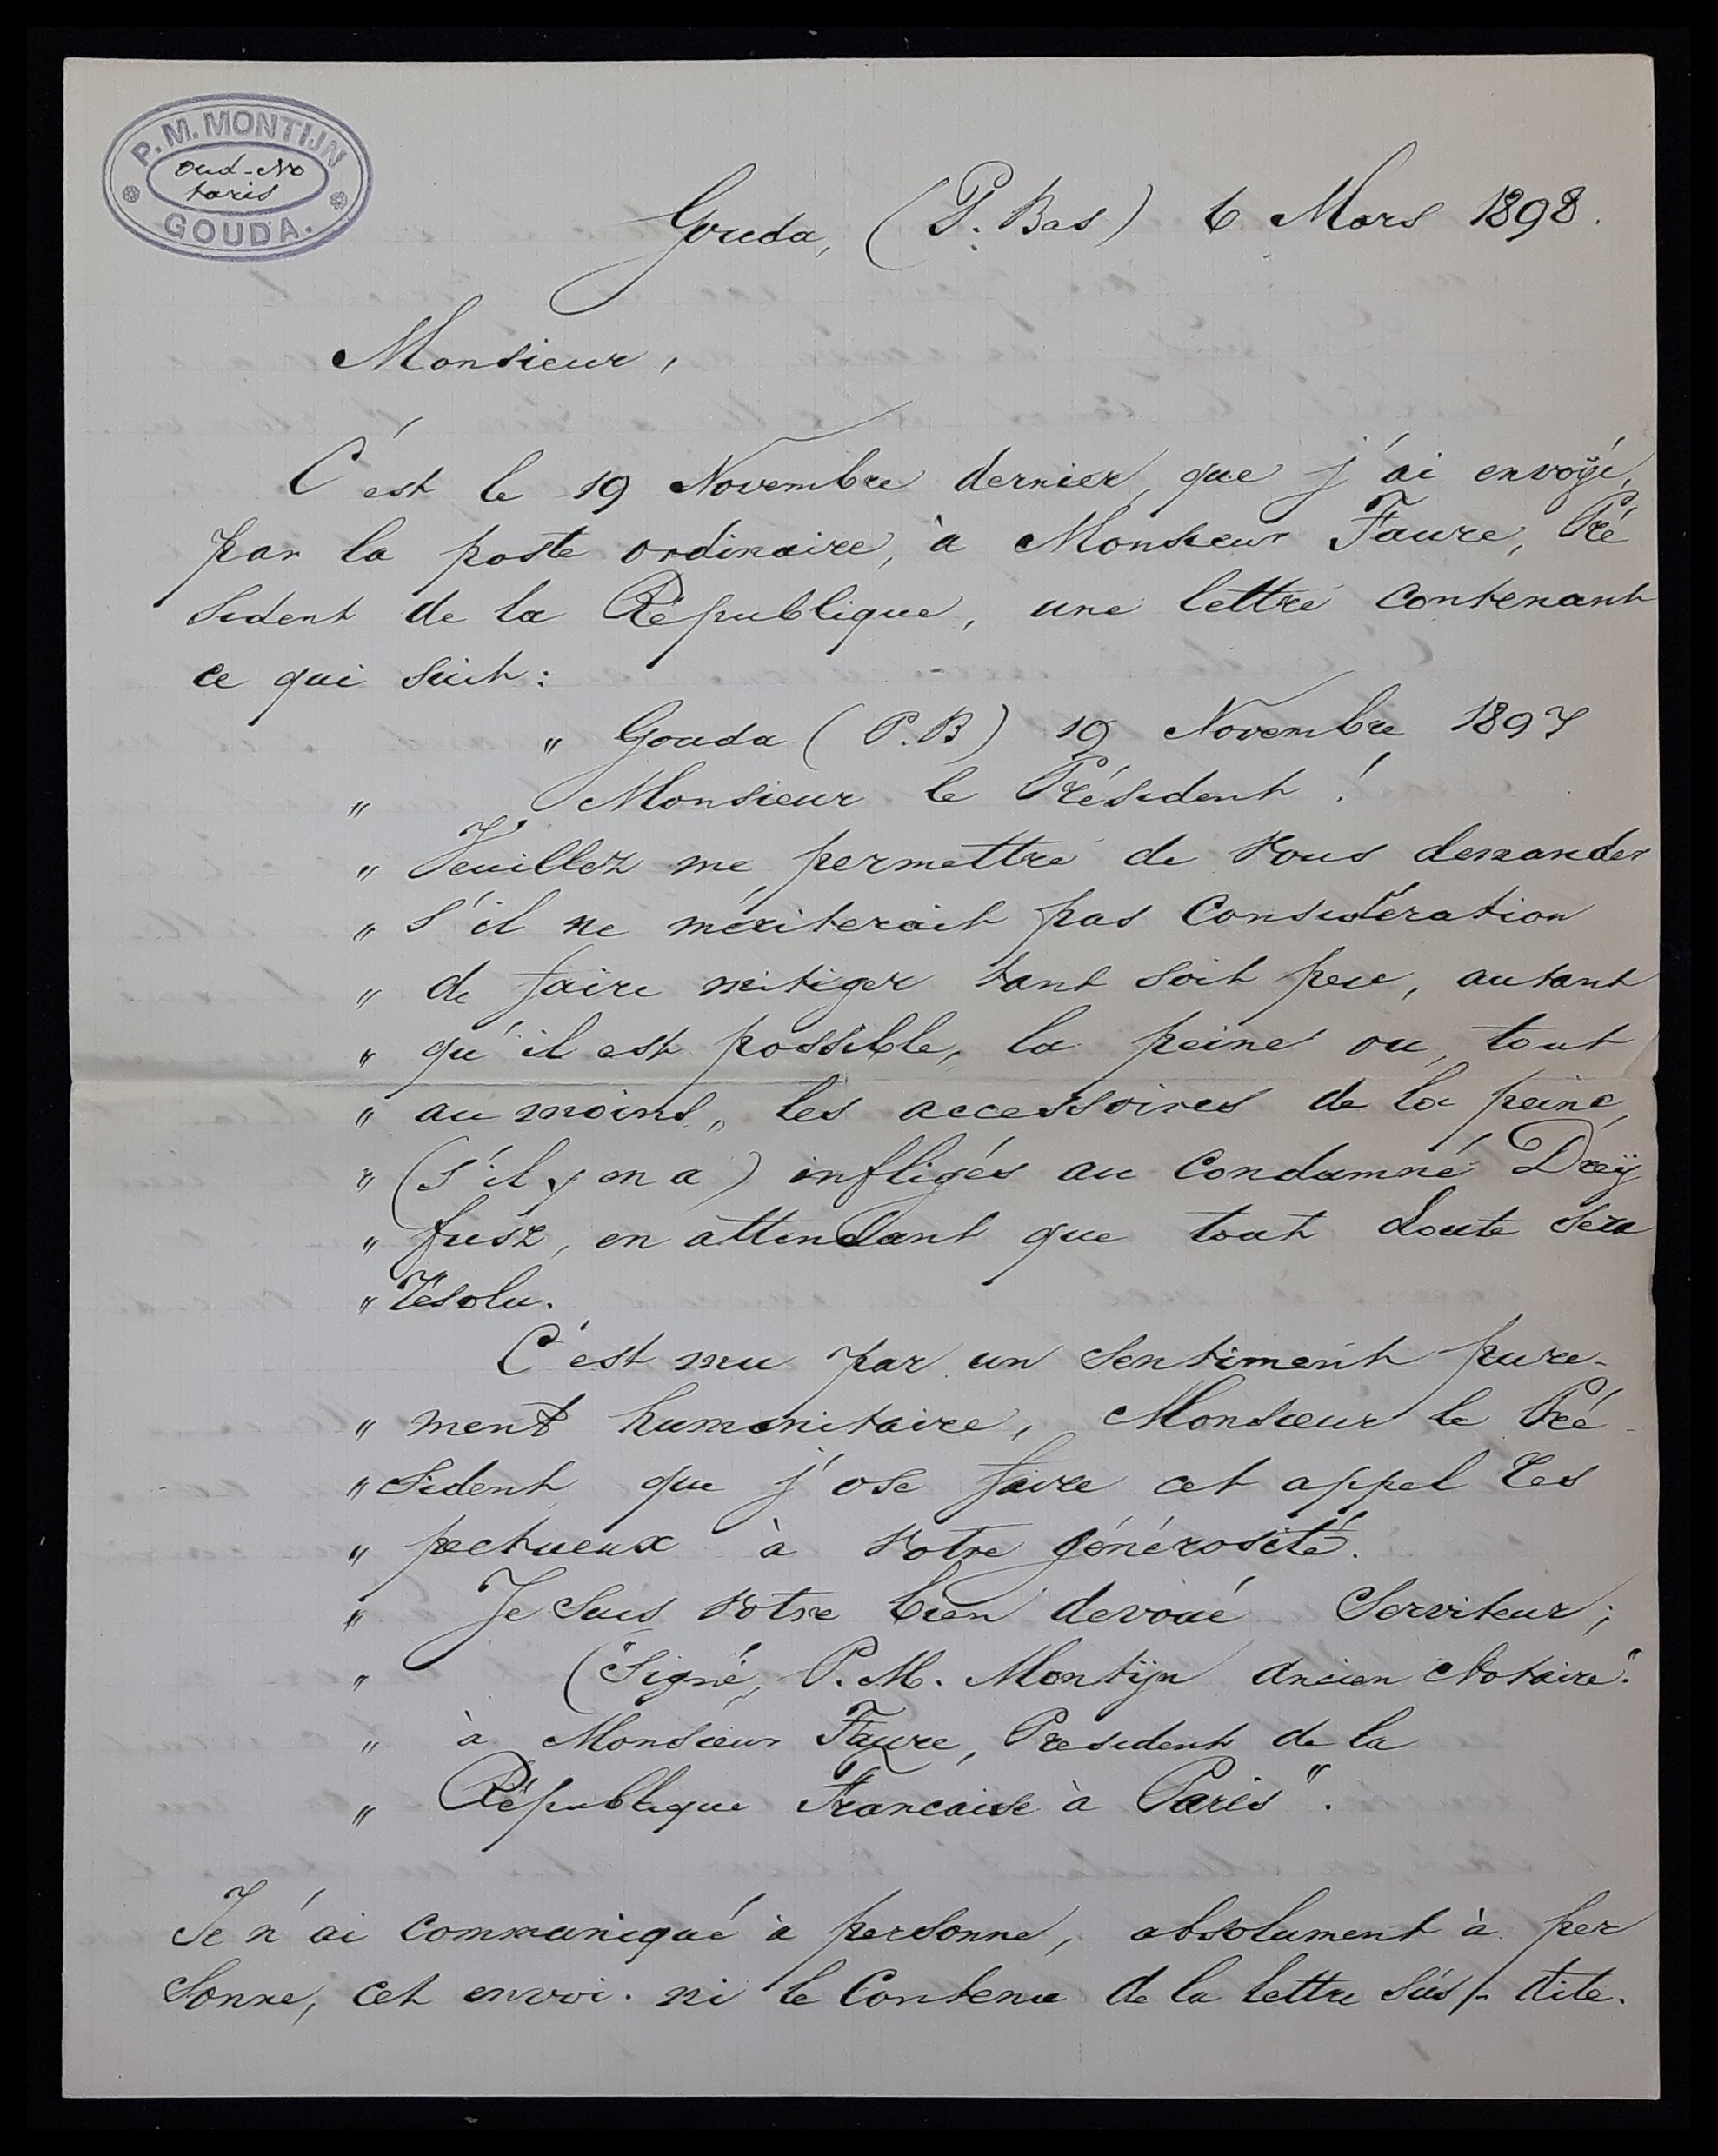 P. M. MONTIJN
Oud-No
taris
GOUDA.
Gouda, (P. Bas) 6 Mars 1898.
Monsieur,
C'est le 19 Novembre dernier, que j'ai envoÿé,
par la poste ordinaire, à Monsieur Faure, Pré
sident de la République, une lettre contenant
ce qui suit:
" Gouda (P.B) 19 Novembre 1897
" Monsieur le Président!
" Veuillez me permettre de vous demander
" s'il ne mériterait pas considération
" de faire mitiger tant soit peu, autant
" qu'il est possible, la peine ou, tout
" au moins, les accessoires de la peine,
" (s'il y en a) infligés au condamné Dreÿ
" fusz, en attendant que tout doute sera
" résolu.
C'est mu par un sentiment pure-
" ment humanitaire, Monsieur le Pré-
" sident que j'ose faire cet appel res
" pectueux à votre générosité.
" Je suis votre bien devoué Serviteur;
" (Signé, P. M. Montijn ancien Notaire".
" à Monsieur Faure, President de la
" République Francaise à Paris".
Je n'ai communiqué à personne, absolument à per
sonne, cet envoi. ni le contenu de la lettre sus/- dite.